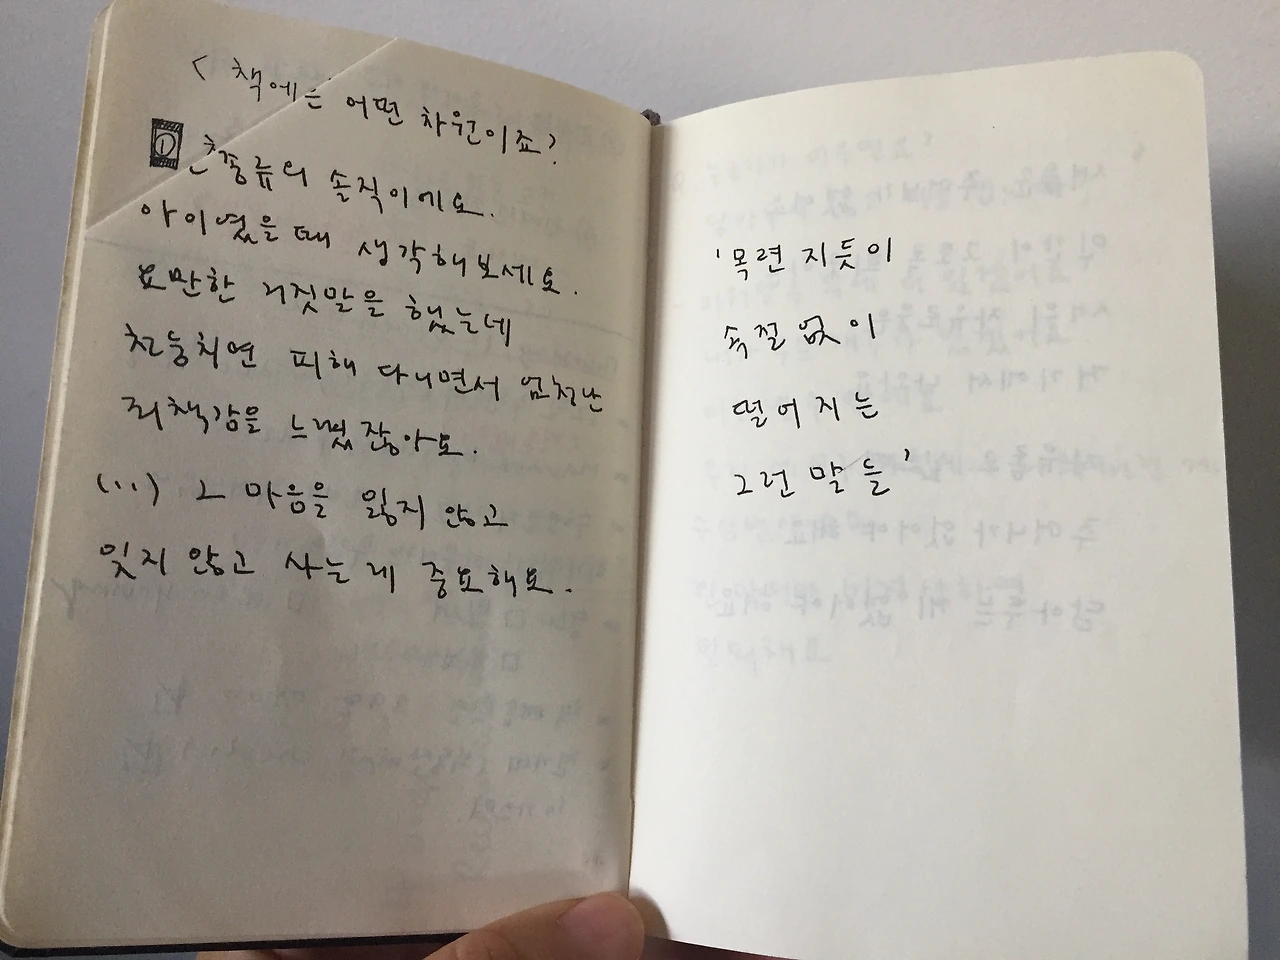 < 책에는 어떤 차원이죠?
1 종류의 솔직이에요.
아이였을 때 생각해보세요.
요만한 거짓말을 했는데
천둥치면 피해 다니면서 엄청난
죄책감을 느꼈잖아요.
(...) 그 마음을 잃지 않고
잊지 않고 사는 게 중요해요.
'목련 지듯이
속절없이
떨어지는
그런 말들'